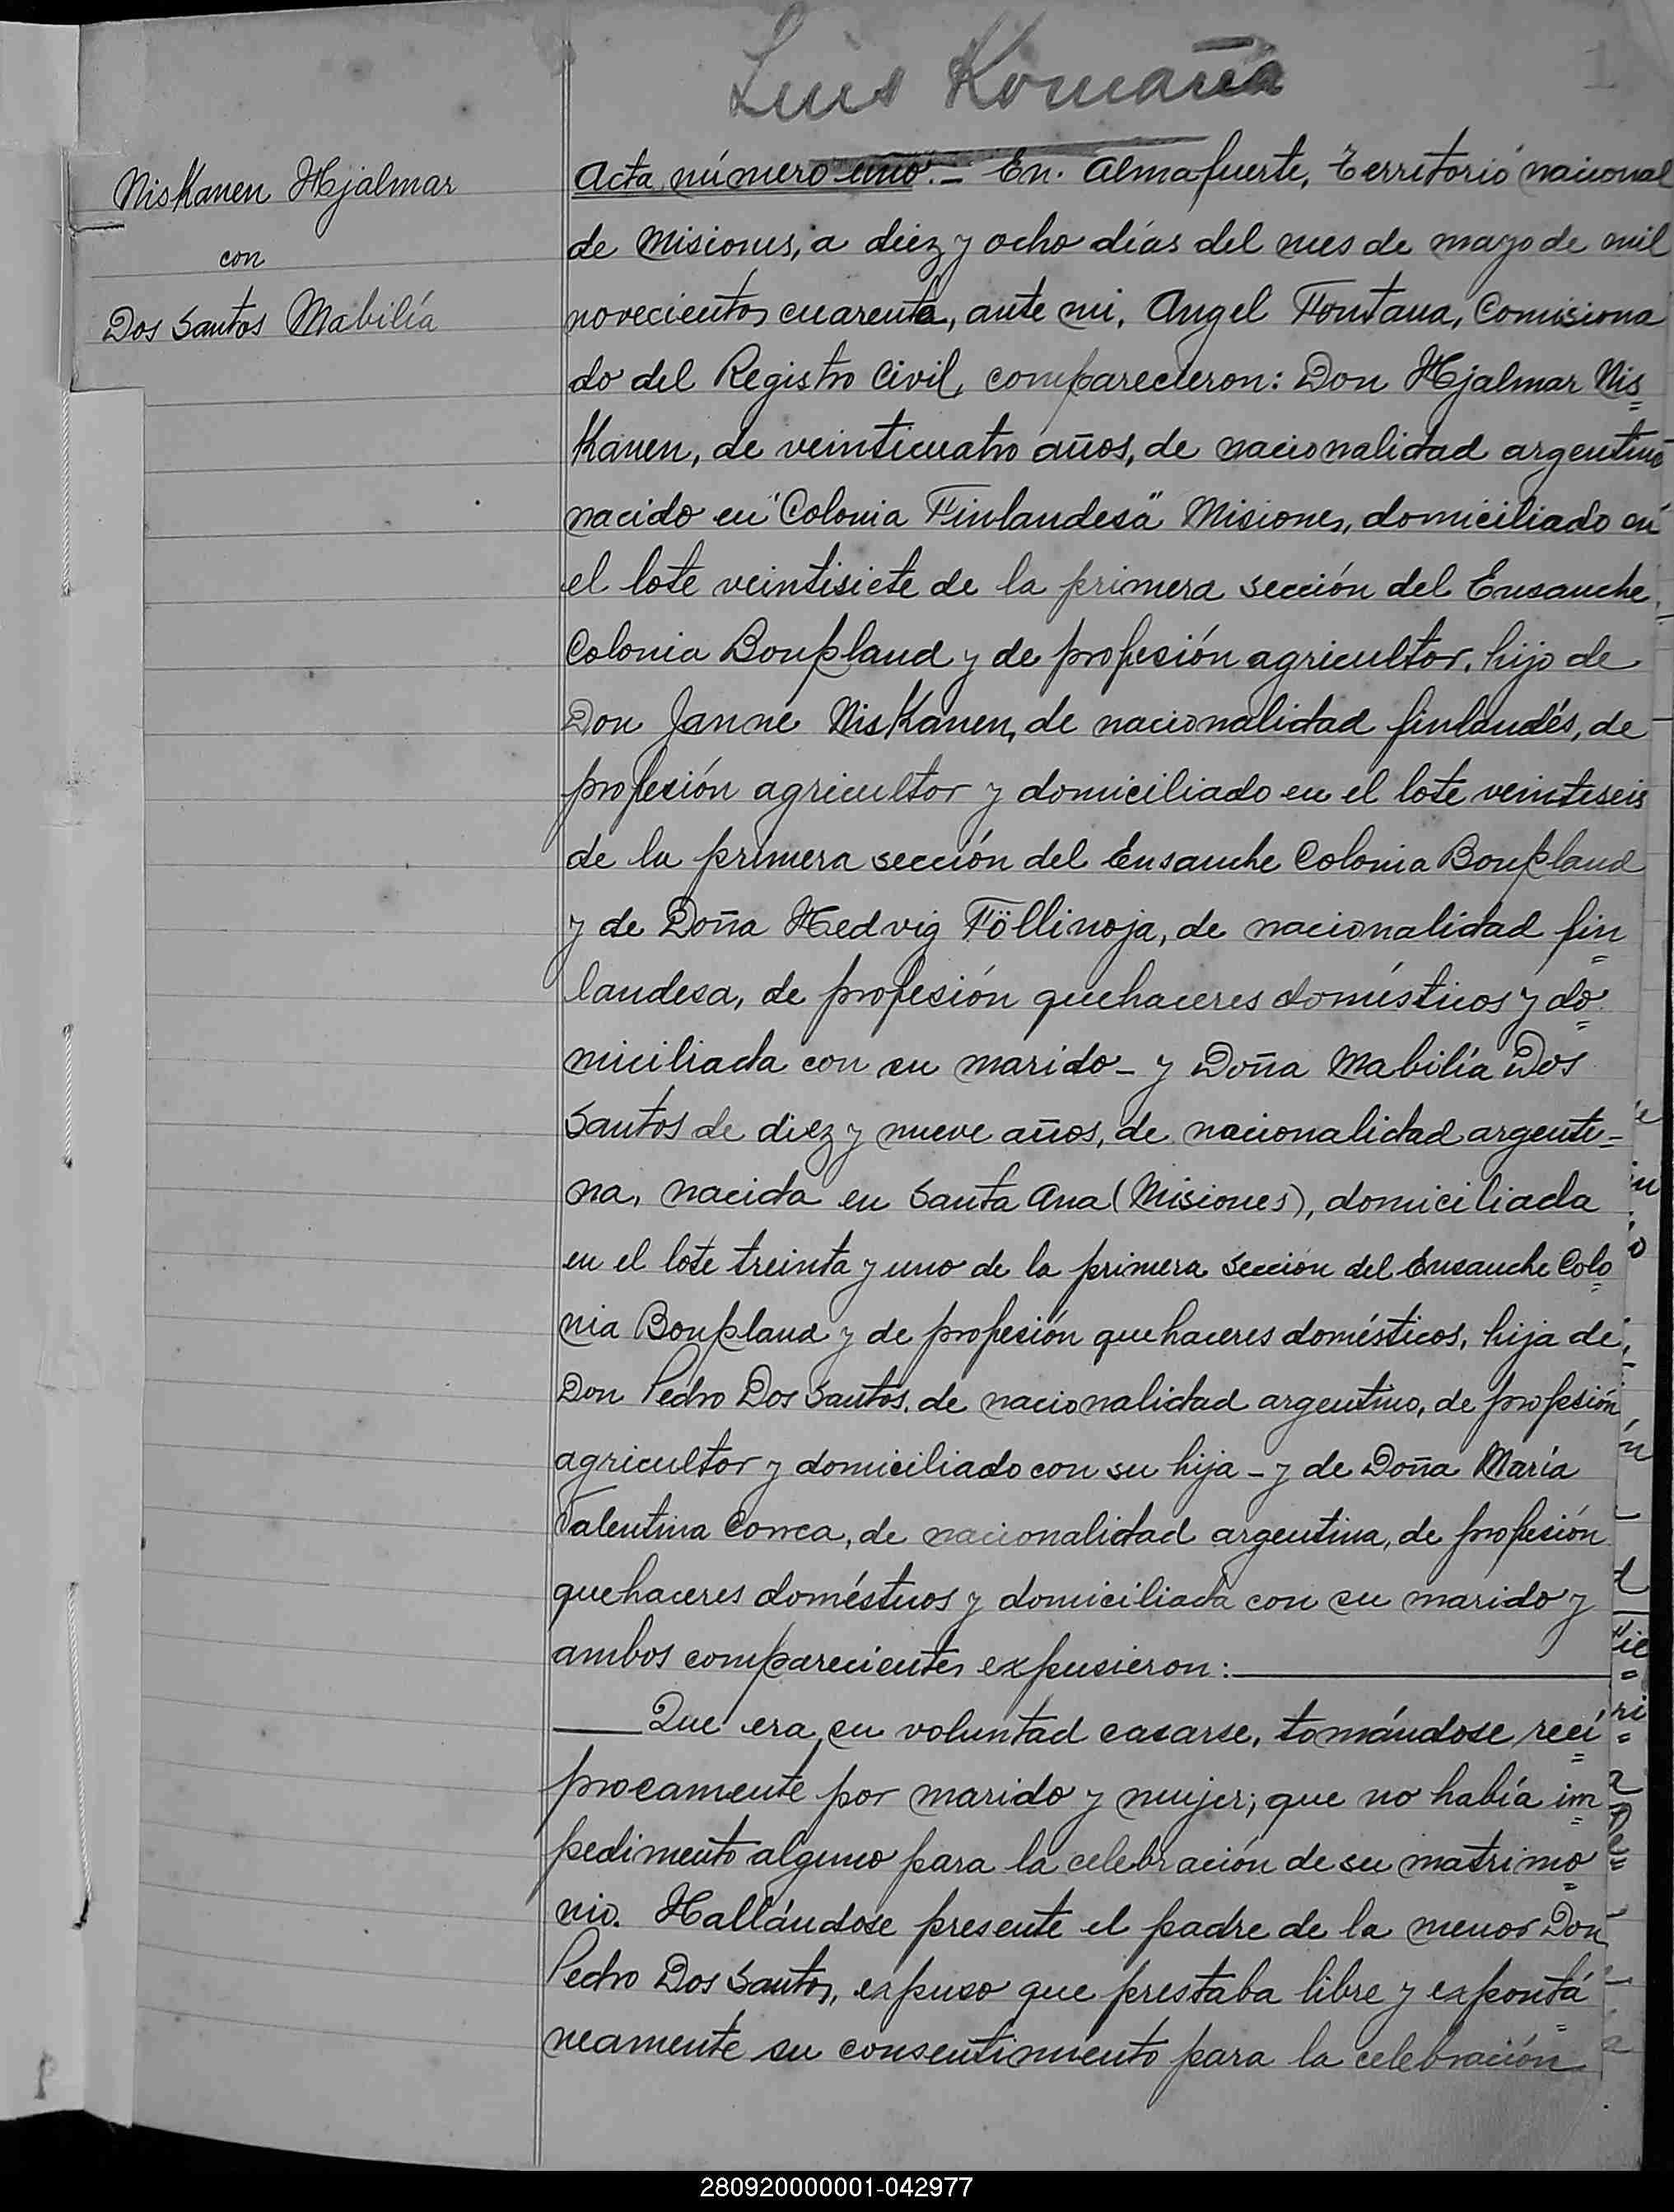 Luis Romaña
1
Niskanen Hjalmar
con
Dos Santos Mabilía
Acta número uno.- En. Almafuerte, Territorio nacional
de Misiones, a diez y ocho días del mes de mayo de mil
novecientos cuarenta, ante mi, Angel Fontana, Comisiona
do del Registro Civil, comparecieron: Don Hjalmar Nis=
Kanen, de veinticuatro años, de nacionalidad argentino
nacido en "Colonia Finlandesa" Misiones, domiciliado en
el lote veintisiete de la primera sección del Ensanche
Colonia Bonpland y de profesión agricultor, hijo de
Don Janne Niskanen, de nacionalidad finlandés, de
profesión agricultor y domiciliado en el lote veintiseis
de la primera sección del Ensanche Colonia Bonpland
y de Doña Hedvig Föllinoja, de nacionalidad fin=
landesa, de profesión quehaceres domésticos y do=
miciliada con su marido - y Doña Mabilía Dos
Santos de diez y nueve años, de nacionalidad argenti-
na, nacida en Santa Ana (Misiones), domiciliada
en el lote treinta y uno de la primera sección del Ensanche Colo=
nia Bonpland y de profesión quehaceres domésticos, hija de
Don Pedro Dos Santos, de nacionalidad argentino, de profesión
agricultor y domiciliado con su hija - y de Doña María
Valentina Correa, de nacionalidad argentina, de profesión
quehaceres domésticos y domiciliada con su marido y
ambos comparecientes expusieron:
Que era su voluntad casarse, tomándose recí=
procamente por marido y mujer; que no había im=
pedimento alguno para la celebración de su matrimo=
nio. Hallándose presente el padre de la menor Don
Pedro Dos Santos, expuso que prestaba libre y expontá=
neamente su consentimiento para la celebración
280920000001-042977